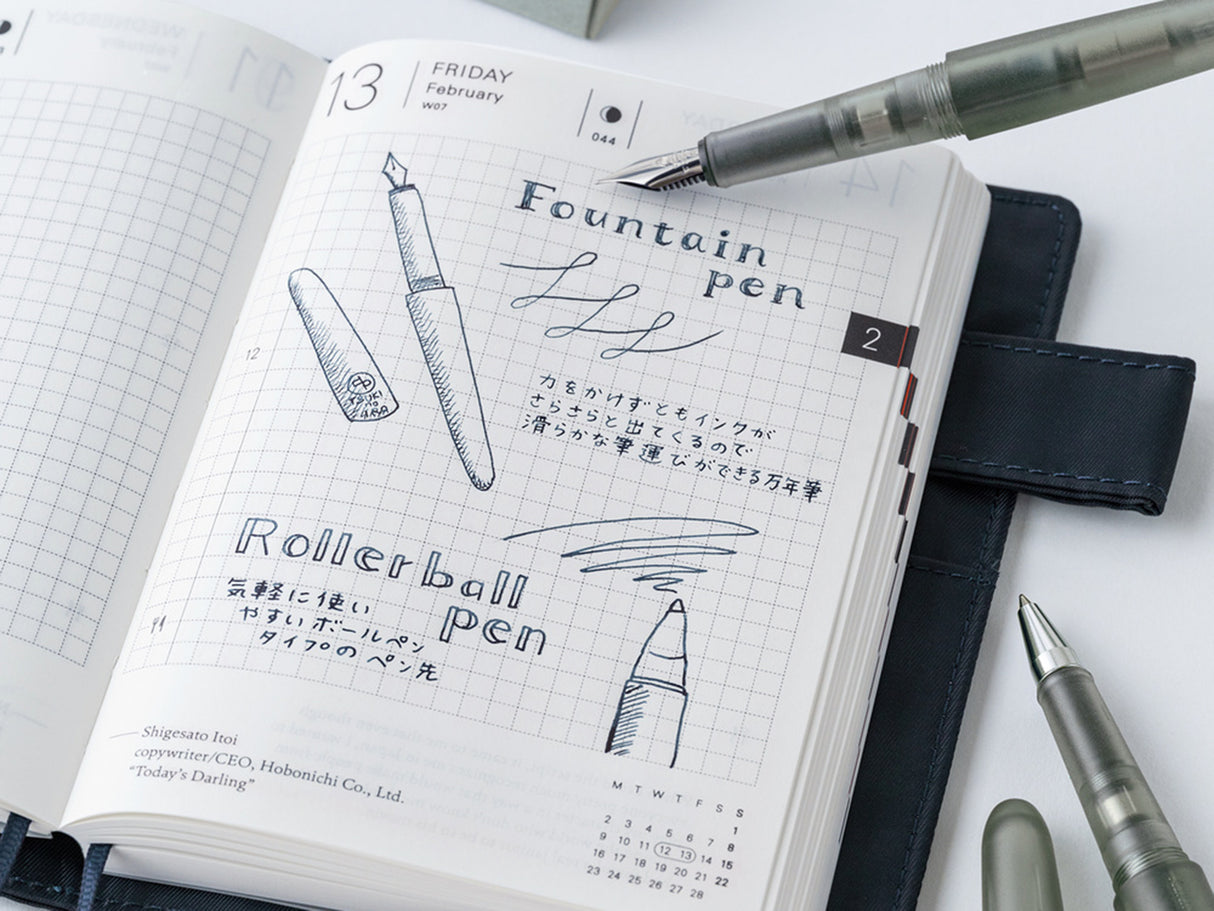 13
FRIDAY
February
W07
044
Fountain
pen
2
12
力をかけずともインクが
さらさらと出てくるので
滑らかな筆運びができる万年筆
Rollerball
pen
気軽に使い
やすいボールペン
タイプのペン先
Shigesato Itoi
copywriter/CEO, Hobonichi Co., Ltd.
“Today’s Darling”
M T W T F S S
1
2 3 4 5 6 7 8
9 10 11 12 13 14 15
16 17 18 19 20 21 22
23 24 25 26 27 28